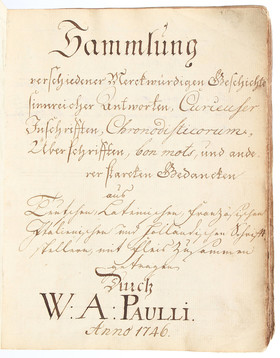 Sammlung
verschiedener Merckwürdigen Geschichte
sinnreicher Antworten, Curieuser
Inschrifften, Chronodisticorum,
Überschrifften, bon mots, und ande-
rer starcken Gedancken
aus
Teutschen, Lateinischen, Französischen
Italienischen und Holländischen Schrifft-
stellern, mit Fleis zusammen
getragen
Durch
W. A. PAULLI.
Anno 1746.